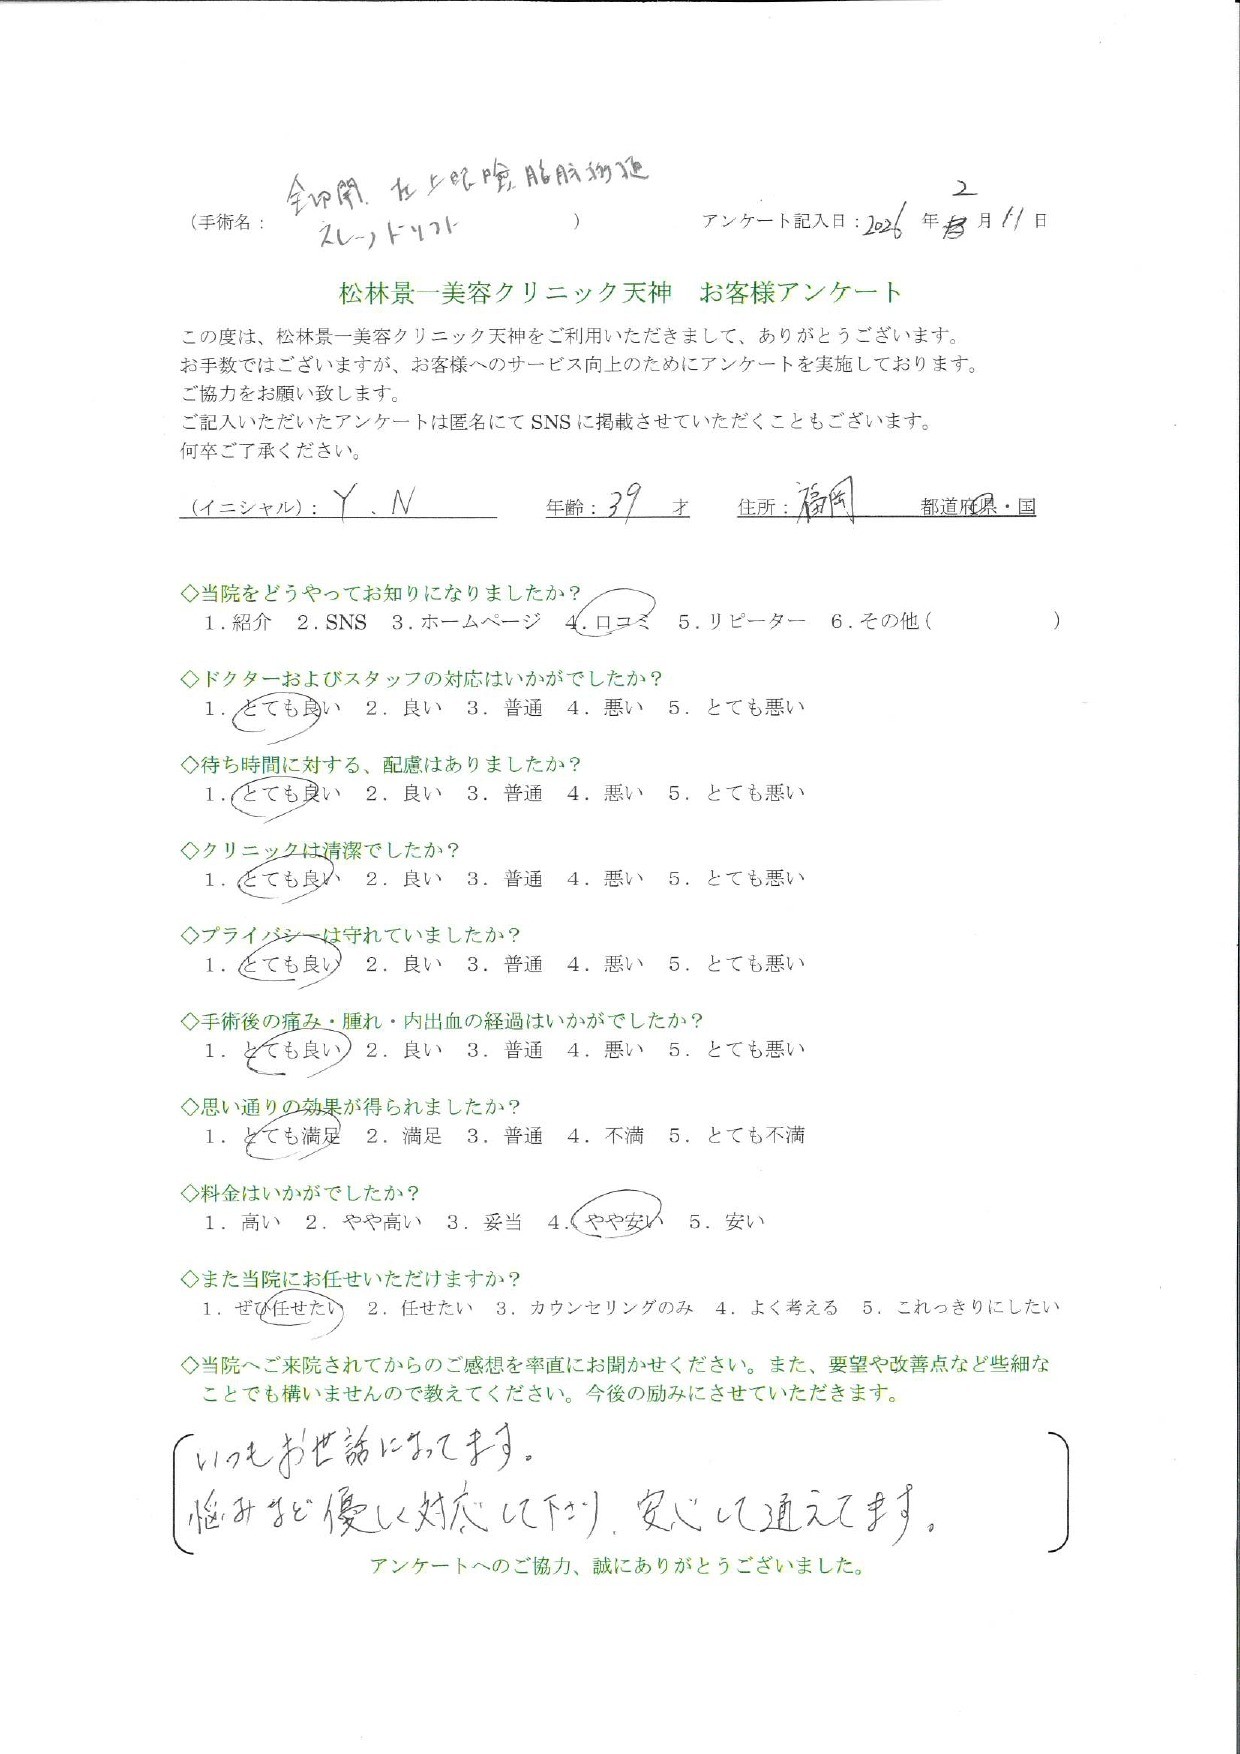 全切開、右上眼瞼脂肪移植
(手術名： スレッドリフト ) アンケート記入日：2026 年 2 月 11 日
松林景一美容クリニック天神　お客様アンケート
この度は、松林景一美容クリニック天神をご利用いただきまして、ありがとうございます。
お手数ではございますが、お客様へのサービス向上のためにアンケートを実施しております。
ご協力をお願い致します。
ご記入いただいたアンケートは匿名にて SNS に掲載させていただくこともございます。
何卒ご了承ください。
(イニシャル)： Y . N 年齢：39 才 住所：福岡 都道府県・国
◇当院をどうやってお知りになりましたか？
1.紹介 2.SNS 3.ホームページ 4.口コミ 5.リピーター 6.その他( )
◇ドクターおよびスタッフの対応はいかがでしたか？
1. とても良い 2. 良い 3. 普通 4. 悪い 5. とても悪い
◇待ち時間に対する、配慮はありましたか？
1. とても良い 2. 良い 3. 普通 4. 悪い 5. とても悪い
◇クリニックは清潔でしたか？
1. とても良い 2. 良い 3. 普通 4. 悪い 5. とても悪い
◇プライバシーは守れていましたか？
1. とても良い 2. 良い 3. 普通 4. 悪い 5. とても悪い
◇手術後の痛み・腫れ・内出血の経過はいかがでしたか？
1. とても良い 2. 良い 3. 普通 4. 悪い 5. とても悪い
◇思い通りの効果が得られましたか？
1. とても満足 2. 満足 3. 普通 4. 不満 5. とても不満
◇料金はいかがでしたか？
1. 高い 2. やや高い 3. 妥当 4. やや安い 5. 安い
◇また当院にお任せいただけますか？
1. ぜひ任せたい 2. 任せたい 3. カウンセリングのみ 4. よく考える 5. これっきりにしたい
◇当院へご来院されてからのご感想を率直にお聞かせください。また、要望や改善点など些細な
ことでも構いませんので教えてください。今後の励みにさせていただきます。
いつもお世話になってます。
悩みなど優しく対応して下さり、安心して通えてます。
アンケートへのご協力、誠にありがとうございました。